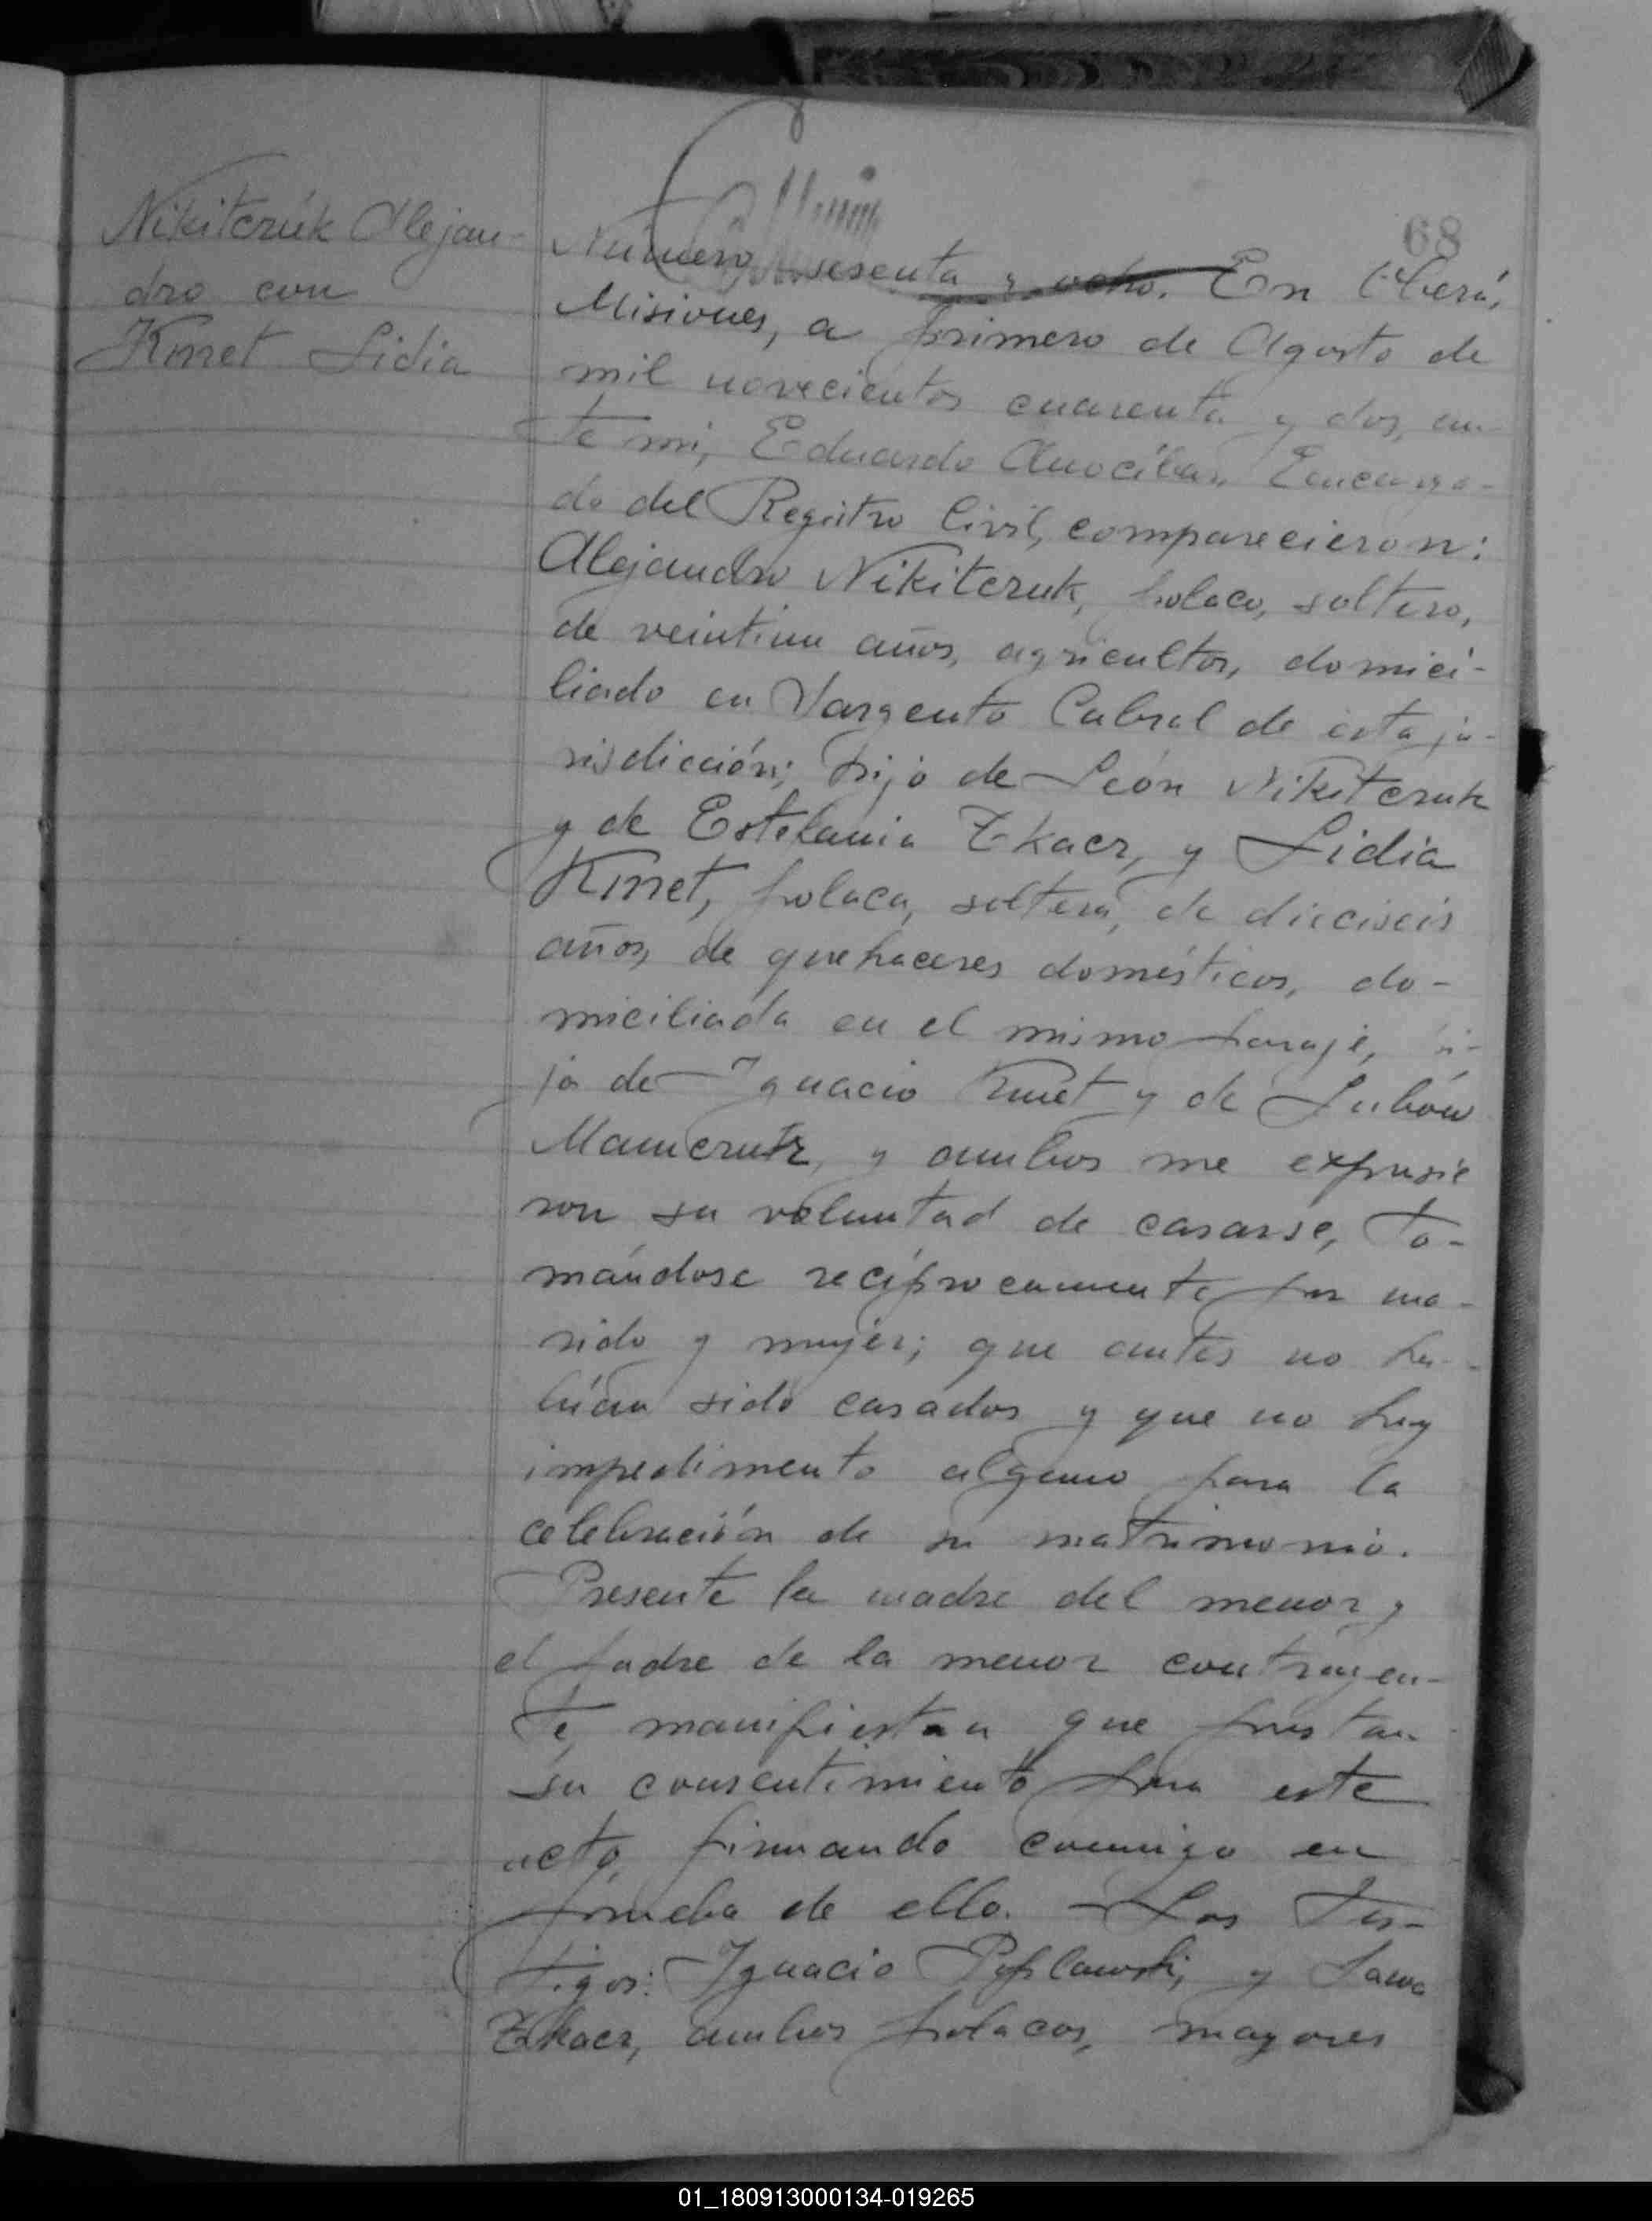 68
Nikitczúk Alejan-
dro con
Kmet Lidia
Número sesenta y ocho. En Oberá,
Misiones, a primero de Agosto de
mil novecientos cuarenta y dos, an-
te mi, Eduardo Encarga-
do del Registro Civil, comparecieron:
Alejandro Nikitczuk, polaco, soltero,
de veintiun años, agricultor, domici-
liado en Sargento Cabral de esta ju-
risdicción; hijo de León Nikitczuk
y de Estefania Tkacz, y Lidia
Kmet, polaca, soltera, de dieciseis
años, de quehaceres domésticos, do-
miciliada en el mismo paraje, hi-
ja de Ignacio Kmet y de Lubow
y ambos me expusie
ron su voluntad de casarse, to-
mándose recíprocamente por ma-
rido y mujer; que antes no ha-
bían sido casados y que no hay
impedimento alguno para la
celebración de su matrimonio.
Presente la madre del menor y
el padre de la menor contrayen-
te, manifiestan que prestan
su consentimiento para este
acto, firmando conmigo en
prueba de ello. - Los Tes-
tigos: Ignacio Poplawski, y Sawa
Tkacz, ambos polacos, mayores
01_180913000134-019265